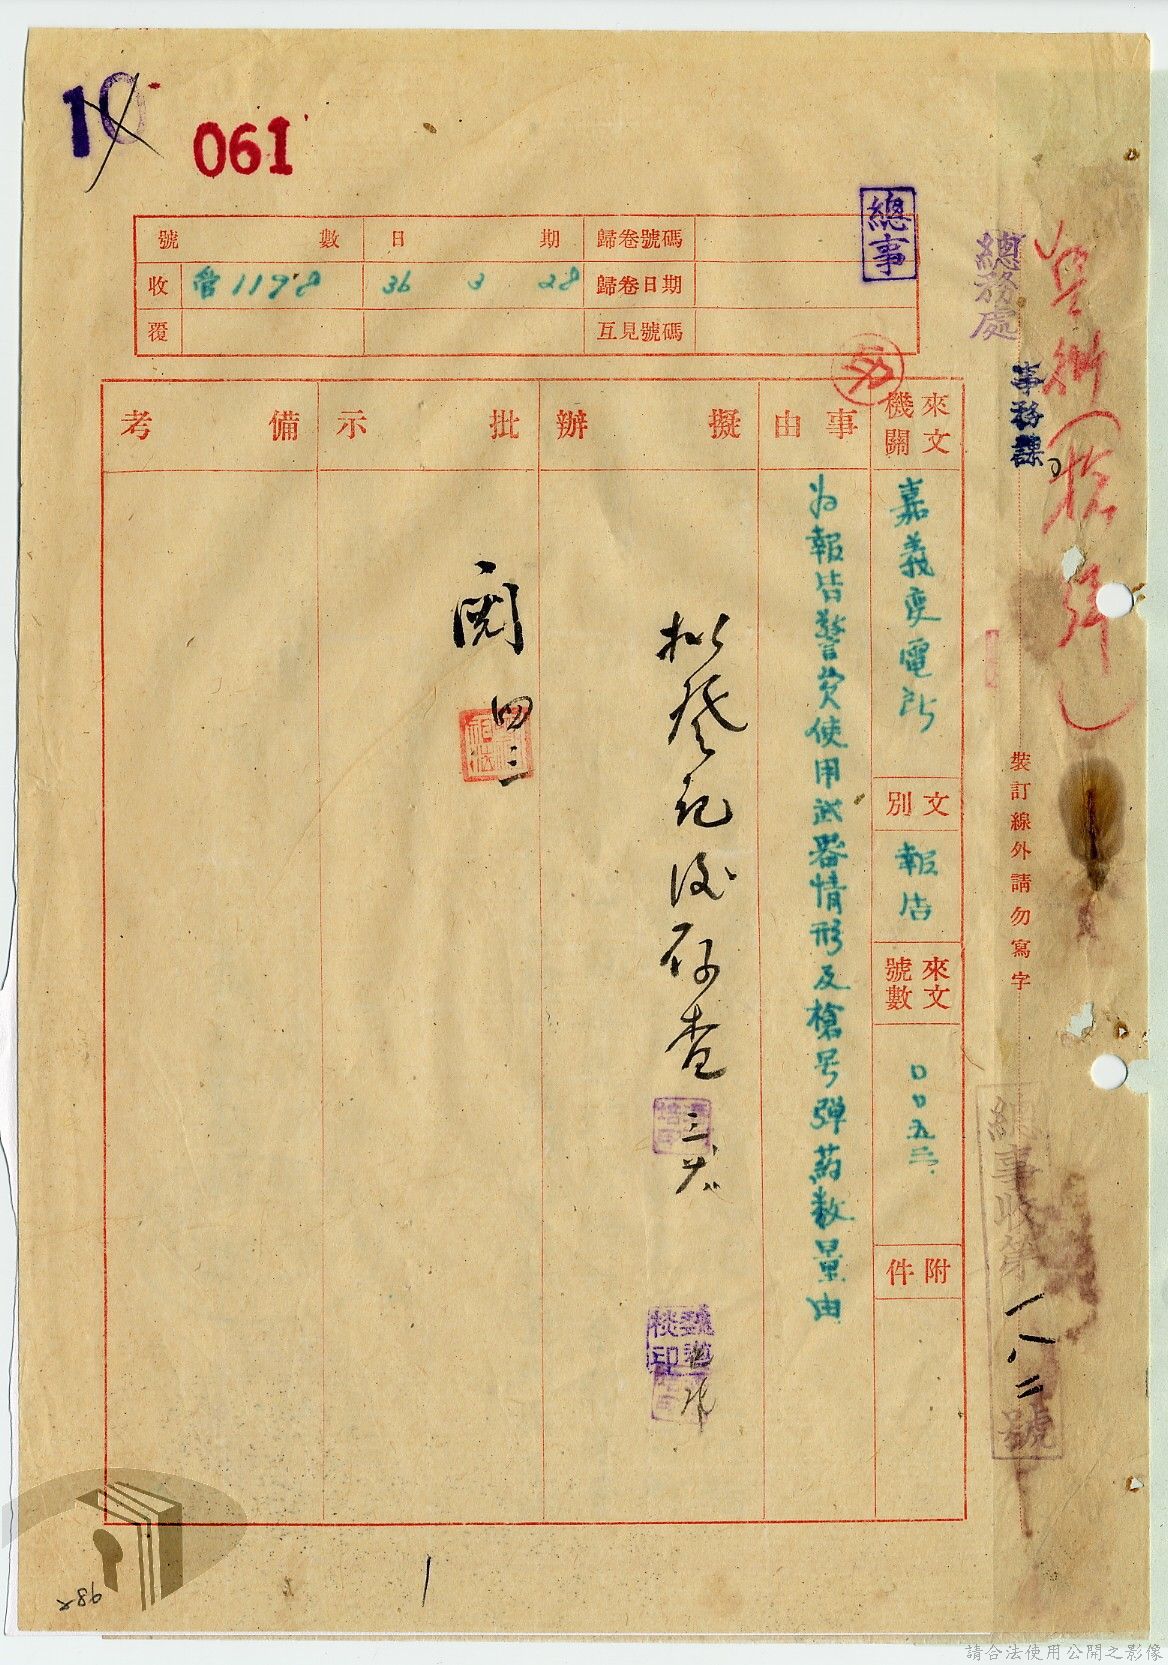 10
061
總事
號數 日期 歸卷號碼
收 管1198 36 3 28 歸卷日期
覆 互見號碼
總務處
事務課
來文機關
嘉義變電所
文別
報告
來文號數
附件
事由
为報告警員使用武器情形及槍号弹葯数量由
擬辦
拟登記後存查
批示
閱 四三
備考
裝訂線外請勿寫字
總事收第一八二號
982
1
請合法使用公開之影像